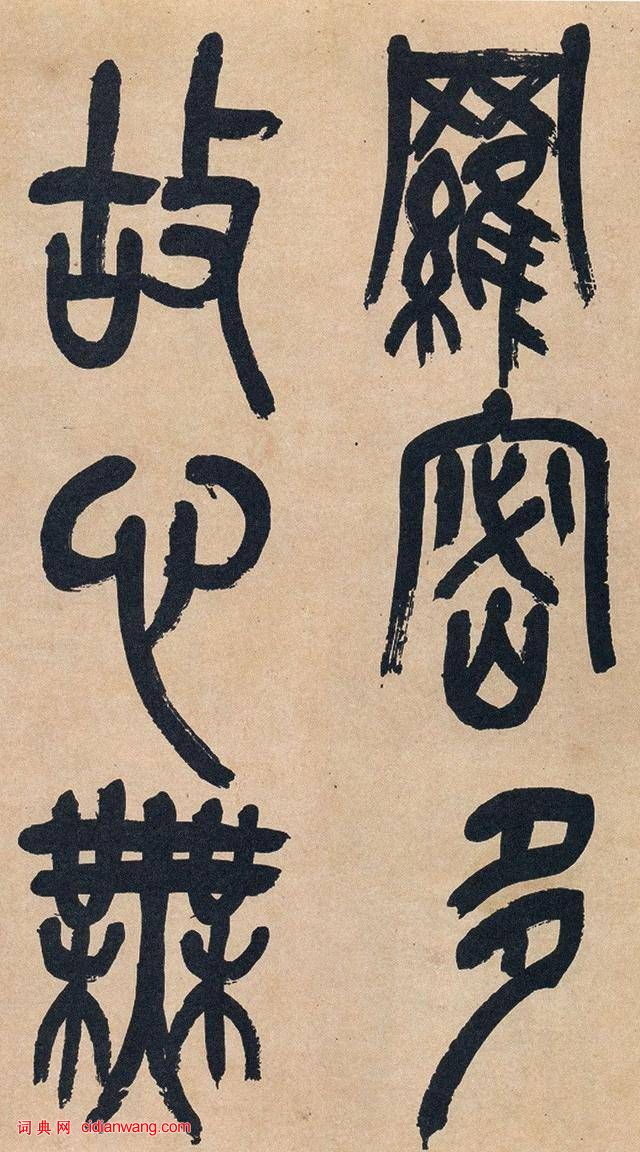 羅密多
故心無
词典网 cidianwang.com